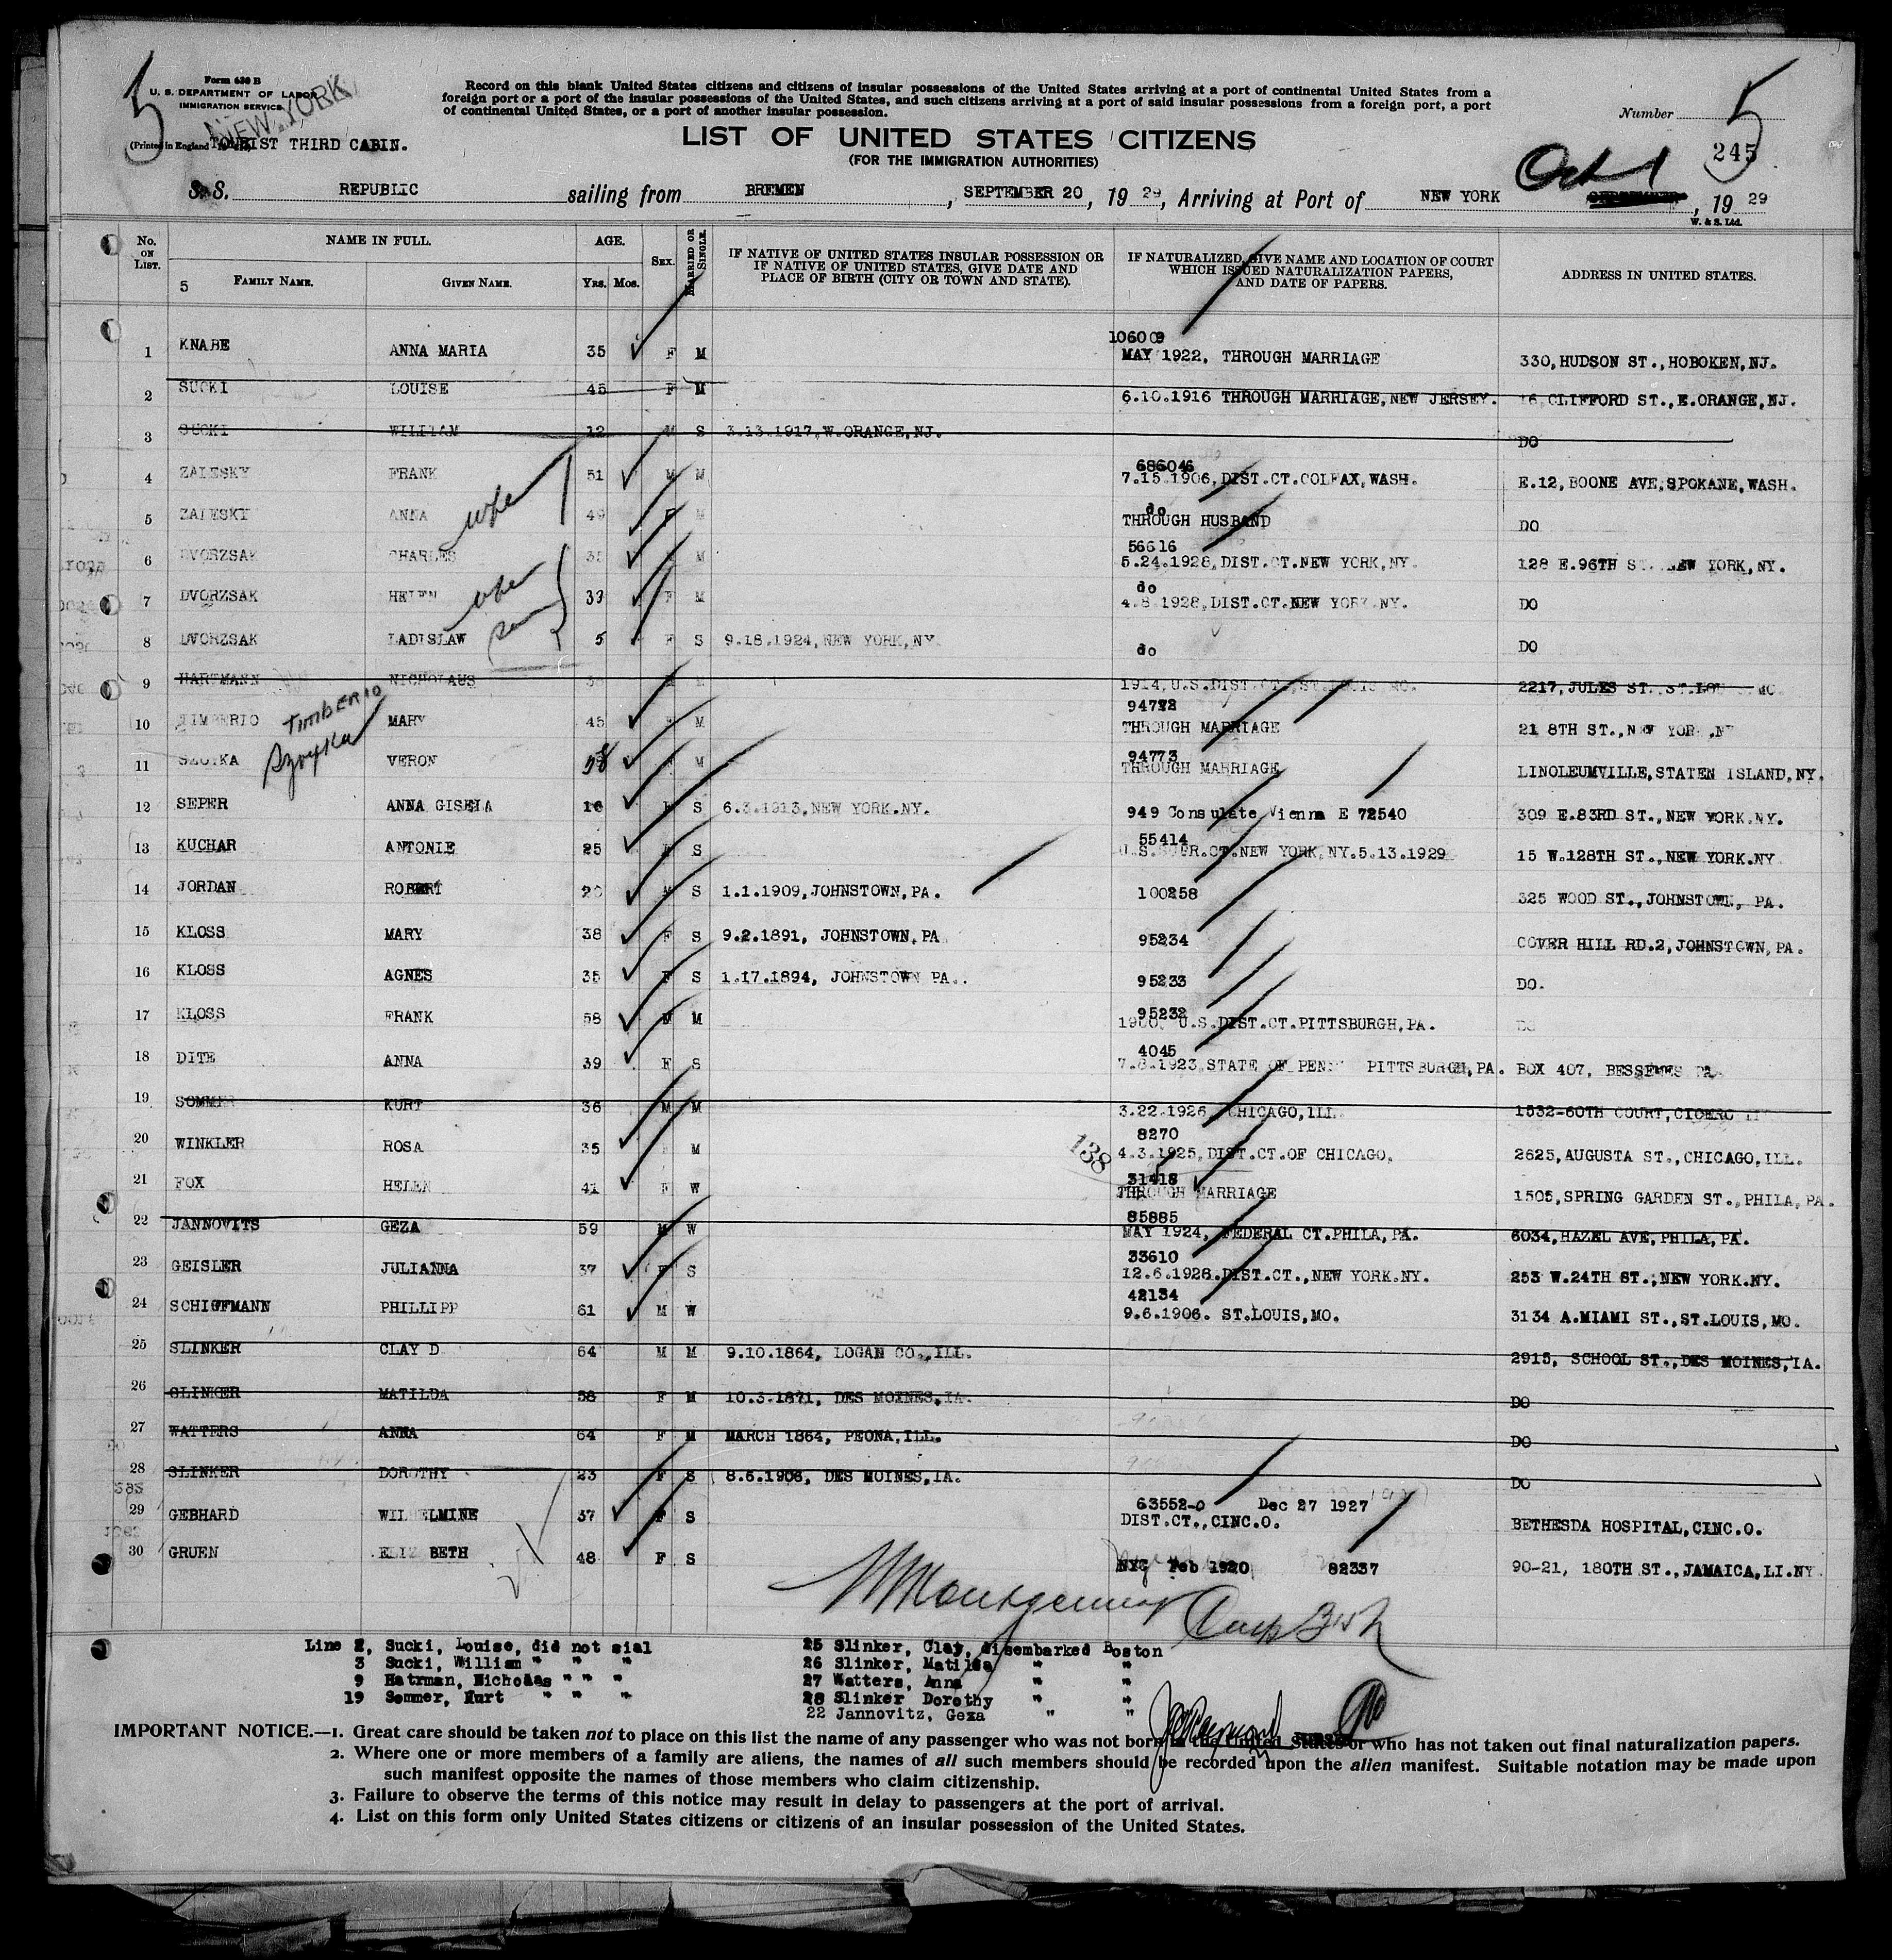 5
Form 630 B
U. S. DEPARTMENT OF LABOR
IMMIGRATION SERVICE
NEW YORK
(Printed in England
TOURIST THIRD CABIN.
Record on this blank United States citizens and citizens of insular possessions of the United States arriving at a port of continental United States from a
foreign port or a port of the insular possessions of the United States, and such citizens arriving at a port of said insular possessions from a foreign port, a port
of continental United States, or a port of another insular possession.
Number 5
245
LIST OF UNITED STATES CITIZENS
(FOR THE IMMIGRATION AUTHORITIES)
S.S. REPUBLIC sailing from BREMEN, SEPTEMBER 20, 1929, Arriving at Port of NEW YORK Oct 1, 1929
W. & S. Ltd.
No. ON LIST. NAME IN FULL. AGE. SEX. MARRIED OR SINGLE. IF NATIVE OF UNITED STATES INSULAR POSSESSION OR IF NATIVE OF UNITED STATES, GIVE DATE AND PLACE OF BIRTH (CITY OR TOWN AND STATE). IF NATURALIZED, GIVE NAME AND LOCATION OF COURT WHICH ISSUED NATURALIZATION PAPERS, AND DATE OF PAPERS. ADDRESS IN UNITED STATES.
5 FAMILY NAME. GIVEN NAME. YRS. MOS.
106009
1 KNABE ANNA MARIA 35 F M MAY 1922, THROUGH MARRIAGE 330, HUDSON ST., HOBOKEN, NJ.
2 SUCKI LOUISE 45 F M 6.10.1916 THROUGH MARRIAGE, NEW JERSEY. 16 CLIFFORD ST., E.ORANGE, NJ.
3 SUCKI WILLIAM 12 M S 3.13.1917, W.ORANGE, NJ. DO
686046
4 ZALESKY FRANK 51 M M 7.15.1906, DIST.CT.COLFAX, WASH. E.12, BOONE AVE, SPOKANE, WASH.
do
5 ZALESKY ANNA 49 F M THROUGH HUSBAND DO
56616
6 DVORZSAK CHARLES M 5.24.1928, DIST.CT.NEW YORK, NY. 128 E.96TH ST. NEW YORK, NY.
do
7 DVORZSAK HELEN 33 F M 4.8.1928, DIST.CT.NEW YORK.NY. DO
8 DVORZSAK LADISLAW 5 F S 9.18.1924, NEW YORK, NY. do DO
9 HARTMANN NICHOLAUS 1914, U.S.DIST.CT., ST.LOUIS MO. 2217, JULES ST. ST.LOU MO.
TIMBERIO
94772
10 TIMBERIO MARY 45 F M THROUGH MARRIAGE 21 8TH ST., NEW YORK, NY
Szoyka
94773
11 SZOIKA VERON 58 F M THROUGH MARRIAGE LINOLEUMVILLE, STATEN ISLAND, NY.
12 SEPER ANNA GISELA 16 F S 6.3.1913, NEW YORK.NY. 949 Consulate Vienna E 72540 309 E.83RD ST., NEW YORK.NY.
55414
13 KUCHAR ANTONIE 25 F S U.S.SUPR.CT.NEW YORK, NY.5.13.1929 15 W.128TH ST., NEW YORK.NY
14 JORDAN ROBERT 20 M S 1.1.1909, JOHNSTOWN, PA. 100258 325 WOOD ST., JOHNSTOWN, PA.
15 KLOSS MARY 38 F S 9.2.1891, JOHNSTOWN, PA 95234 COVER HILL RD.2, JOHNSTOWN, PA.
16 KLOSS AGNES 35 F S 1.17.1894, JOHNSTOWN PA.. 95233 DO.
95232
17 KLOSS FRANK 58 M M 1900, U.S.DIST.CT.PITTSBURGH, PA. DO
4045
18 DITE ANNA 39 F S 7.8.1923 STATE OF PENN PITTSBURGH, PA. BOX 407, BESSEMES PA
19 SOMMER KURT 36 M M 3.22.1926, CHICAGO, ILL 1532-60TH COURT, CICERO
8270
20 WINKLER ROSA 35 F M 4.3.1925, DIST.CT.OF CHICAGO. 2625, AUGUSTA ST., CHICAGO, ILL.
138
31418
21 FOX HELEN 41 F W THROUGH MARRIAGE 1505, SPRING GARDEN ST., PHILA, PA.
85885
22 JANNOVITS GEZA 59 M W MAY 1924, FEDERAL CT.PHILA, PA. 6034, HAZEL AVE, PHILA, PA.
33610
23 GEISLER JULIANNA 37 F S 12.6.1928.DIST.CT., NEW YORK.NY. 253 W.24TH ST., NEW YORK.NY.
42134
24 SCHIFFMANN PHILLIPP 61 M W 9.6.1906. ST.LOUIS, MO. 3134 A.MIAMI ST., ST.LOUIS, MO.
25 SLINKER CLAY D 64 M M 9.10.1864, LOGAN CO., ILL. 2915, SCHOOL ST., DES MOINES, IA.
26 SLINKER MATILDA 58 F M 10.3.1871, DES MOINES, IA. DO
27 WATTERS ANNA 64 F M MARCH 1864, PEONA, ILL. DO
28 SLINKER DOROTHY 23 F S 8.6.1906, DES MOINES, IA. DO
63552-0 Dec 27 1927
29 GEBHARD WILHELMINE 37 F S DIST.CT., CINC.O. BETHESDA HOSPITAL, CINC.O.
30 GRUEN ELIZABETH 48 F S NYC Feb 1920 82337 90-21, 180TH ST., JAMAICA, LI.NY.
Line 2, Sucki, Louise, did not sial
3 Sucki, William " " "
9 Hatrman, Nicholas " " "
19 Sommer, Kurt " " "
25 Slinker, Clay, disembarked Boston
26 Slinker, Matilda " "
27 Watters, Anna " "
28 Slinker Dorothy " "
22 Jannovitz, Geza " "
IMPORTANT NOTICE.—1. Great care should be taken not to place on this list the name of any passenger who was not born in the United States or who has not taken out final naturalization papers.
2. Where one or more members of a family are aliens, the names of all such members should be recorded upon the alien manifest. Suitable notation may be made upon
such manifest opposite the names of those members who claim citizenship.
3. Failure to observe the terms of this notice may result in delay to passengers at the port of arrival.
4. List on this form only United States citizens or citizens of an insular possession of the United States.